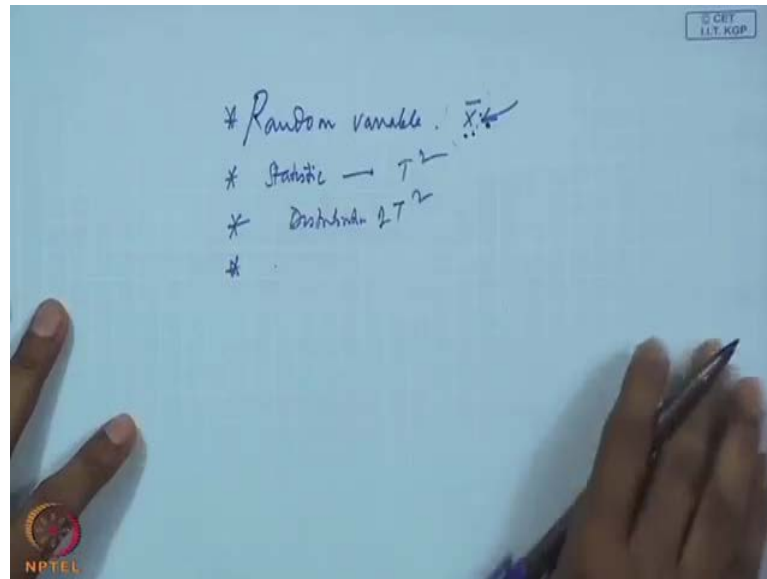 © CET
I.I.T. KGP
* Random variable. X̄
* Statistic — T²
* Distribution of T²
*
NPTEL